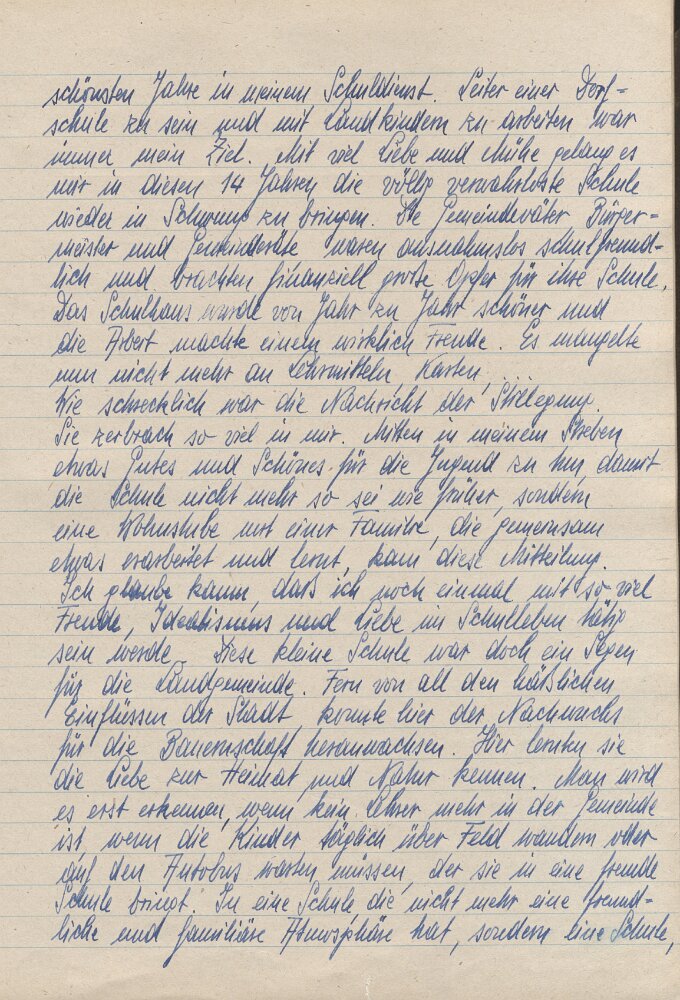 schönsten Jahre in meinem Schuldienst. Leiter einer Dorf=
schule zu sein und mit Landkindern zu arbeiten war
immer mein Ziel. Mit viel Liebe und Mühe gelang es
mir in diesen 14 Jahren die völlig verwahrloste Schule
wieder in Schwung zu bringen. Die Gemeindeväter Bürger=
meister und Gemeinderäte waren ausnahmslos schulfreund=
lich und brachten finanziell große Opfer für ihre Schule.
Das Schulhaus wurde von Jahr zu Jahr schöner und
die Arbeit machte einem wirklich Freude. Es mangelte
nun nicht mehr an Lehrmitteln, Karten, ...
Wie schrecklich war die Nachricht der Stillegung.
Sie zerbrach so viel in mir. Mitten in meinem Streben
etwas Gutes und Schönes für die Jugend zu tun, damit
die Schule nicht mehr so sei wie früher, sondern
eine Wohnstube mit einer Familie, die gemeinsam
etwas erarbeitet und lernt, kam diese Mitteilung.
Ich glaube kaum, daß ich noch einmal mit so viel
Freude, Idealismus und Liebe im Schulleben tätig
sein werde. Diese kleine Schule war doch ein Segen
für die Landgemeinde. Fern von all den häßlichen
Einflüssen der Stadt, konnte hier der Nachwuchs
für die Bauernschaft heranwachsen. Hier lernten sie
die Liebe zur Heimat und Natur kennen. Man wird
es erst erkennen, wenn kein Lehrer mehr in der Gemeinde
ist, wenn die Kinder täglich über Feld wandern oder
auf den Autobus warten müssen, der sie in eine fremde
Schule bringt. In eine Schule, die nicht mehr eine freund=
liche und familiäre Atmosphäre hat, sondern eine Schule,